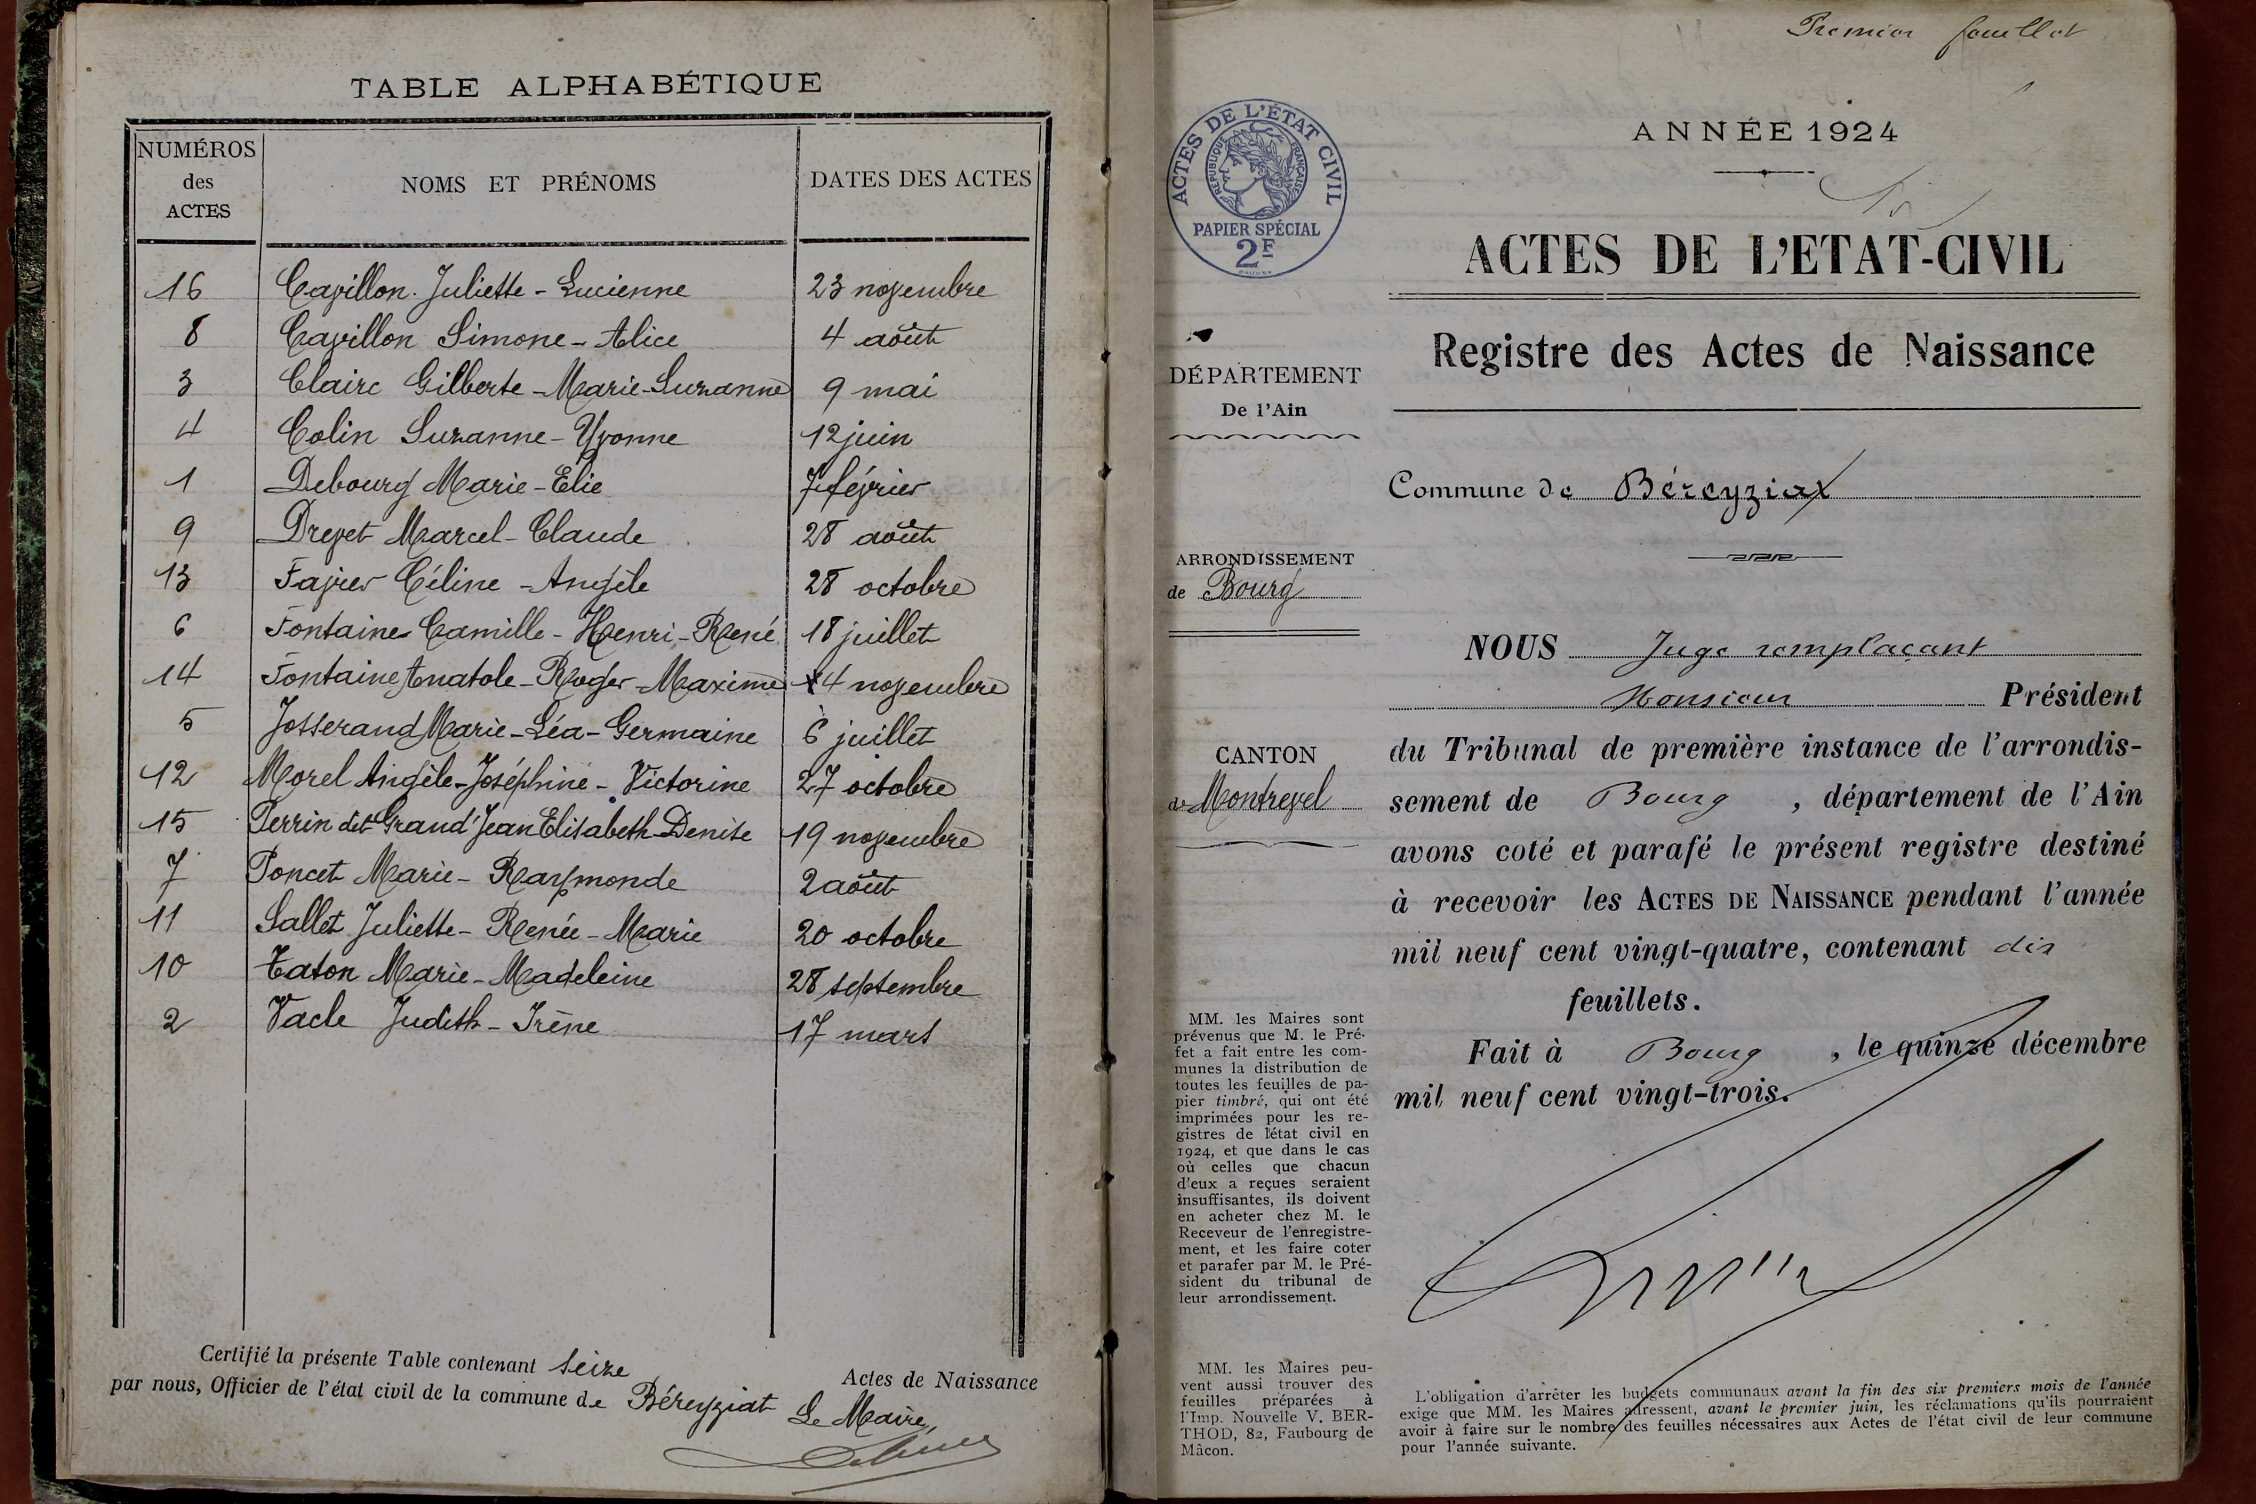 TABLE ALPHABÉTIQUE
NUMÉROS des ACTES
NOMS ET PRÉNOMS
DATES DES ACTES
16 Cavillon Juliette - Lucienne 23 novembre
8 Cavillon Simone - Alice 4 août
3 Claire Gilberte - Marie - Suzanne 9 mai
4 Colin Suzanne - Yvonne 12 juin
1 Debourg Marie - Elie 7 février
9 Drevet Marcel - Claude 28 août
13 Favier Céline - Angèle 28 octobre
6 Fontaine Camille - Henri - René 18 juillet
14 Fontaine Anatole - Roger - Maxime 4 novembre
5 Josserand Marie - Léa - Germaine 6 juillet
12 Morel Angèle - Joséphine - Victorine 27 octobre
15 Perrin dit Grand'Jean Elisabeth Denise 19 novembre
7 Poncet Marie - Raymonde 2 août
11 Sallet Juliette - Renée - Marie 20 octobre
10 Taton Marie - Madeleine 28 septembre
2 Vacle Judith - Irène 17 mars
Certifié la présente Table contenant seize Actes de Naissance
par nous, Officier de l'état civil de la commune de Béreyziat
Le Maire,
Premier feuillet
ACTES DE L'ÉTAT CIVIL
RÉPUBLIQUE FRANÇAISE
PAPIER SPÉCIAL
2F
ANNÉE 1924
ACTES DE L'ETAT-CIVIL
Registre des Actes de Naissance
DÉPARTEMENT
De l'Ain
Commune de Béreyziat
ARRONDISSEMENT
de Bourg
CANTON
de Montrevel
NOUS Juge remplaçant
Monsieur Président
du Tribunal de première instance de l'arrondis-
sement de Bourg, département de l'Ain
avons coté et parafé le présent registre destiné
à recevoir les ACTES DE NAISSANCE pendant l'année
mil neuf cent vingt-quatre, contenant dix
feuillets.
Fait à Bourg, le quinze décembre
mil neuf cent vingt-trois.
MM. les Maires sont
prévenus que M. le Pré-
fet a fait entre les com-
munes la distribution de
toutes les feuilles de pa-
pier timbré, qui ont été
imprimées pour les re-
gistres de l'état civil en
1924, et que dans le cas
où celles que chacun
d'eux a reçues seraient
insuffisantes, ils doivent
en acheter chez M. le
Receveur de l'enregistre-
ment, et les faire coter
et parafer par M. le Pré-
sident du tribunal de
leur arrondissement.
MM. les Maires peu-
vent aussi trouver des
feuilles préparées à
l'Imp. Nouvelle V. BER-
THOD, 82, Faubourg de
Mâcon.
L'obligation d'arrêter les budgets communaux avant la fin des six premiers mois de l'année
exige que MM. les Maires adressent, avant le premier juin, les réclamations qu'ils pourraient
avoir à faire sur le nombre des feuilles nécessaires aux Actes de l'état civil de leur commune
pour l'année suivante.